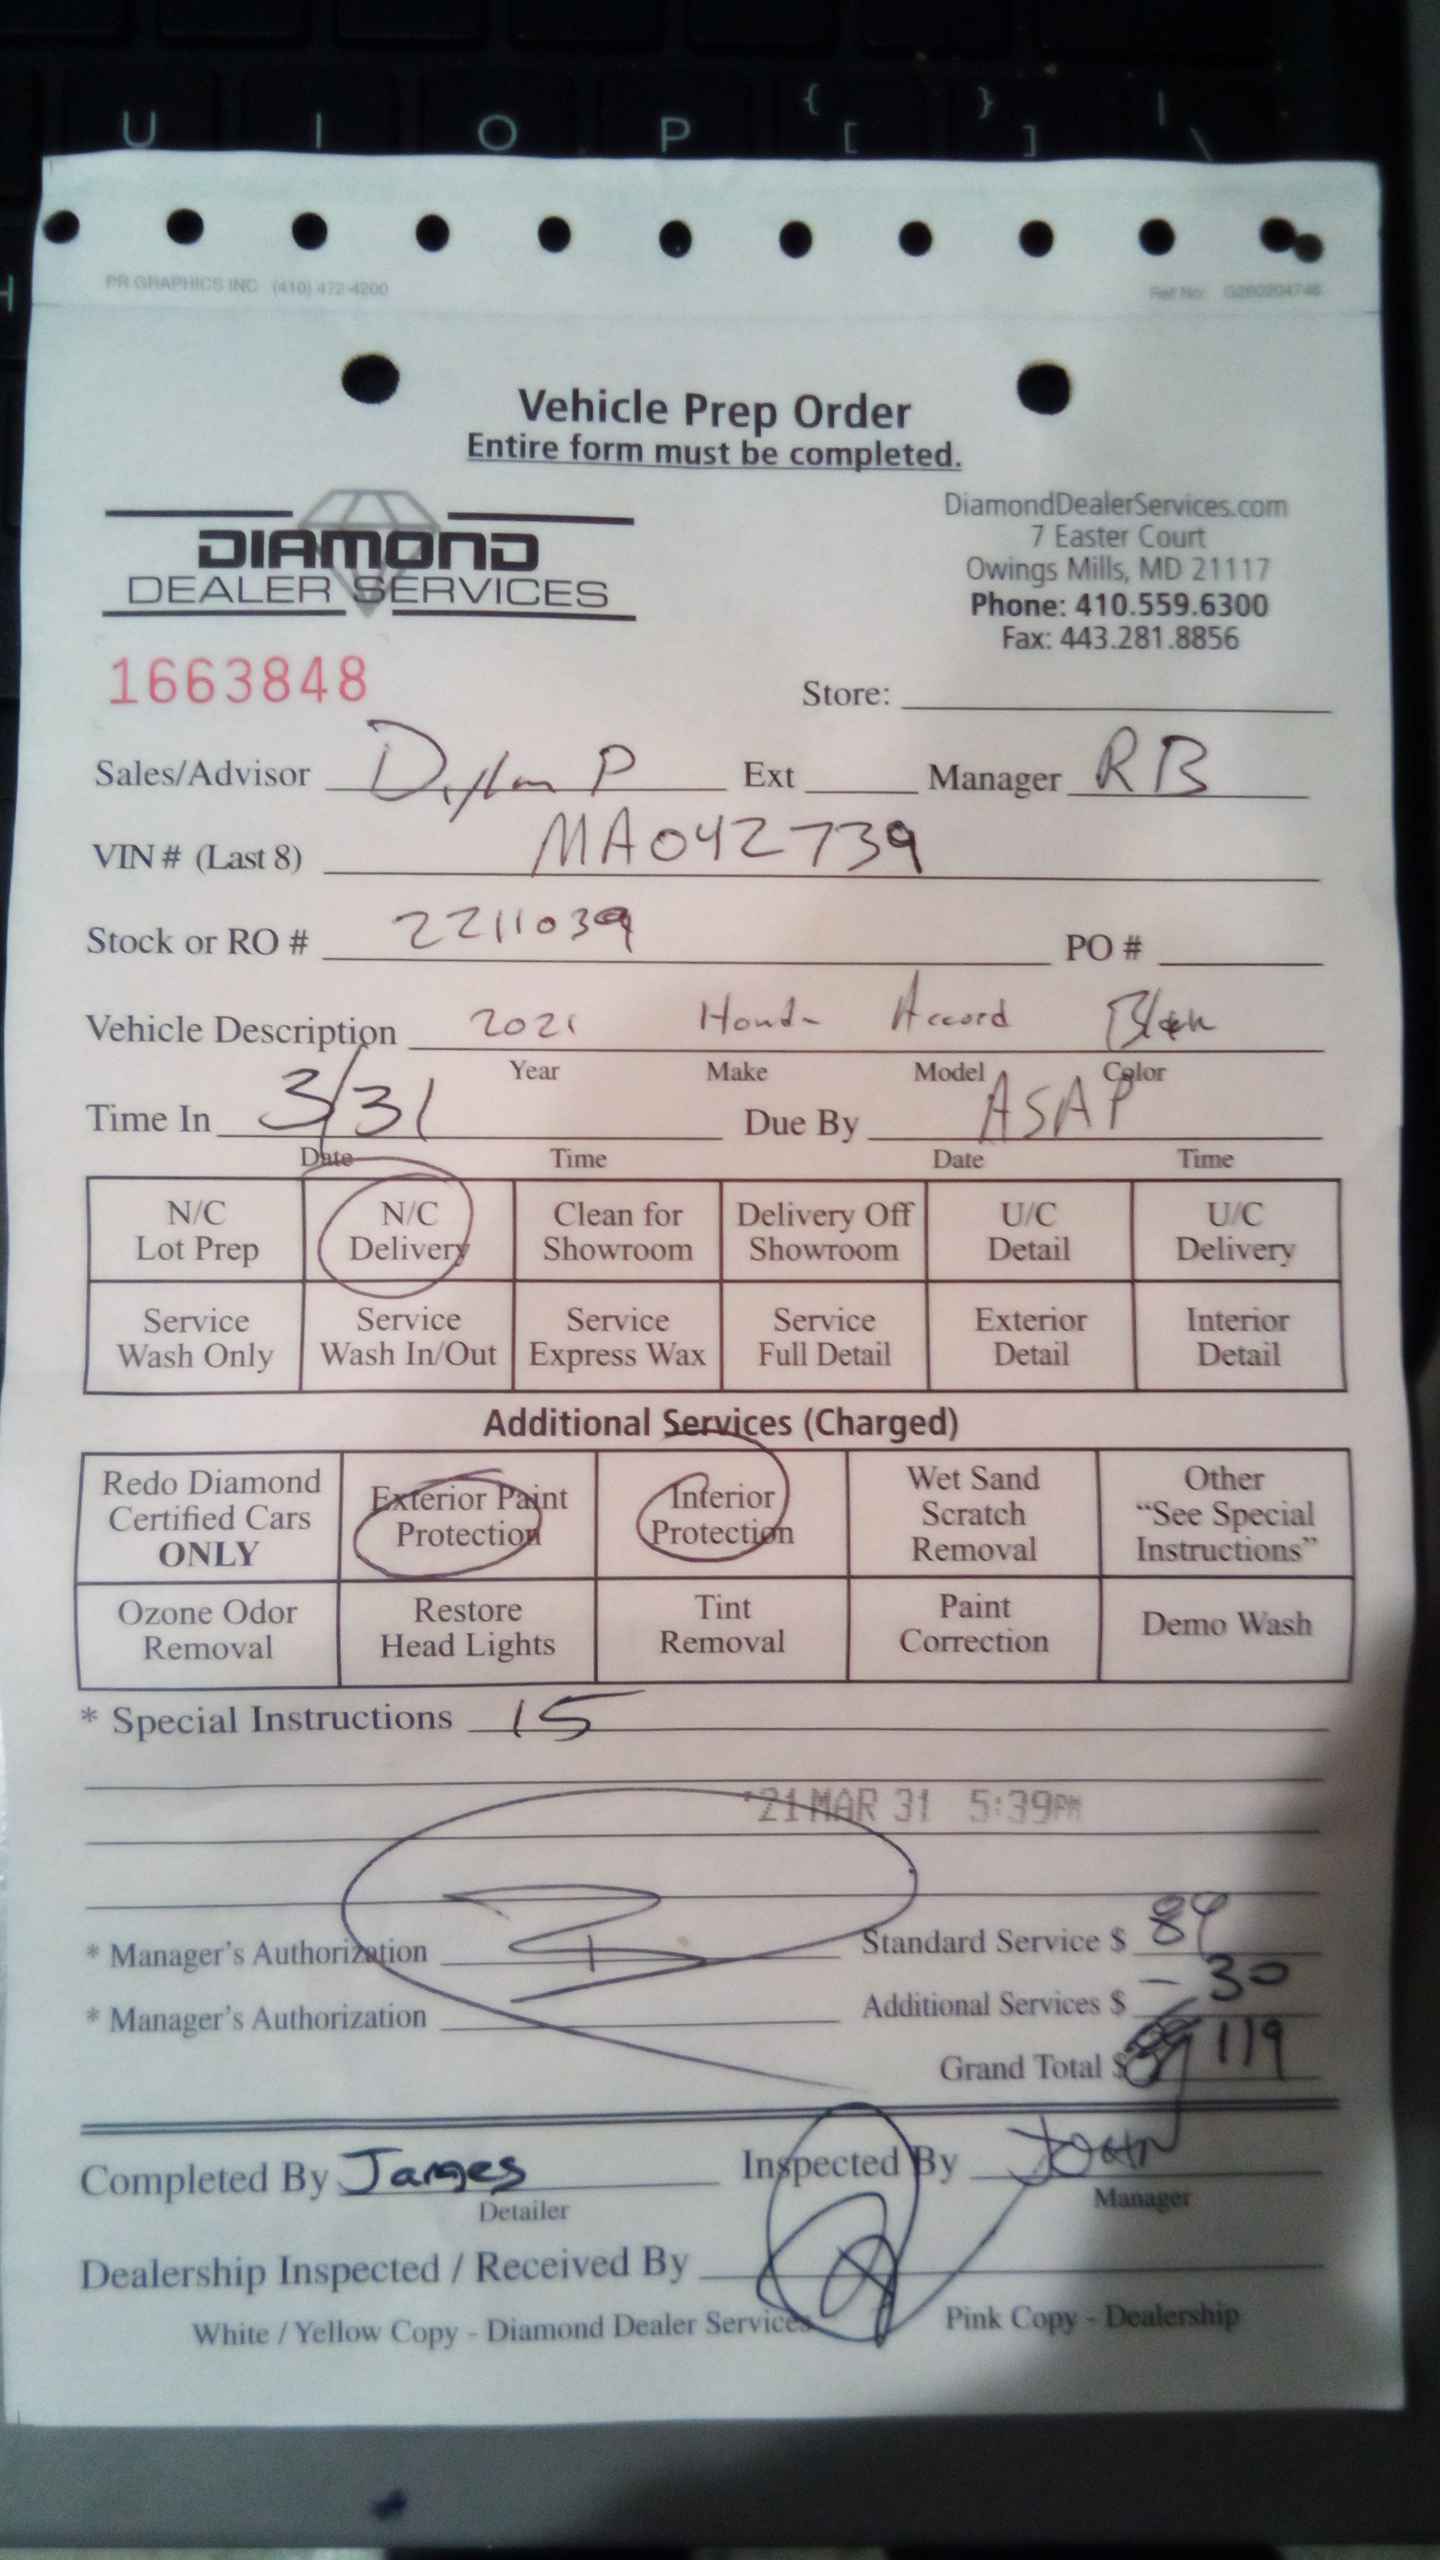 U I O P { [ } ] | \
H
PR GRAPHICS INC (410) 472-4200 Ref No: G260204746
Vehicle Prep Order
Entire form must be completed.
DIAMOND
DEALER SERVICES
DiamondDealerServices.com
7 Easter Court
Owings Mills, MD 21117
Phone: 410.559.6300
Fax: 443.281.8856
1663848
Store:
Sales/Advisor Dylan P Ext Manager RB
VIN # (Last 8) MA042739
Stock or RO # 2211039 PO #
Vehicle Description 2021 Honda Accord Black
Year Make Model Color
Time In 3/31 Due By ASAP
Date Time Date Time
N/C Lot Prep N/C Delivery Clean for Showroom Delivery Off Showroom U/C Detail U/C Delivery
Service Wash Only Service Wash In/Out Service Express Wax Service Full Detail Exterior Detail Interior Detail
Additional Services (Charged)
Redo Diamond Certified Cars ONLY Exterior Paint Protection Interior Protection Wet Sand Scratch Removal Other "See Special Instructions"
Ozone Odor Removal Restore Head Lights Tint Removal Paint Correction Demo Wash
* Special Instructions 15
'21 MAR 31 5:39PM
* Manager's Authorization Standard Service $ 89
* Manager's Authorization Additional Services $ - 30
Grand Total $ 119
Completed By James Inspected By JOHN
Detailer Manager
Dealership Inspected / Received By
White / Yellow Copy - Diamond Dealer Services Pink Copy - Dealership